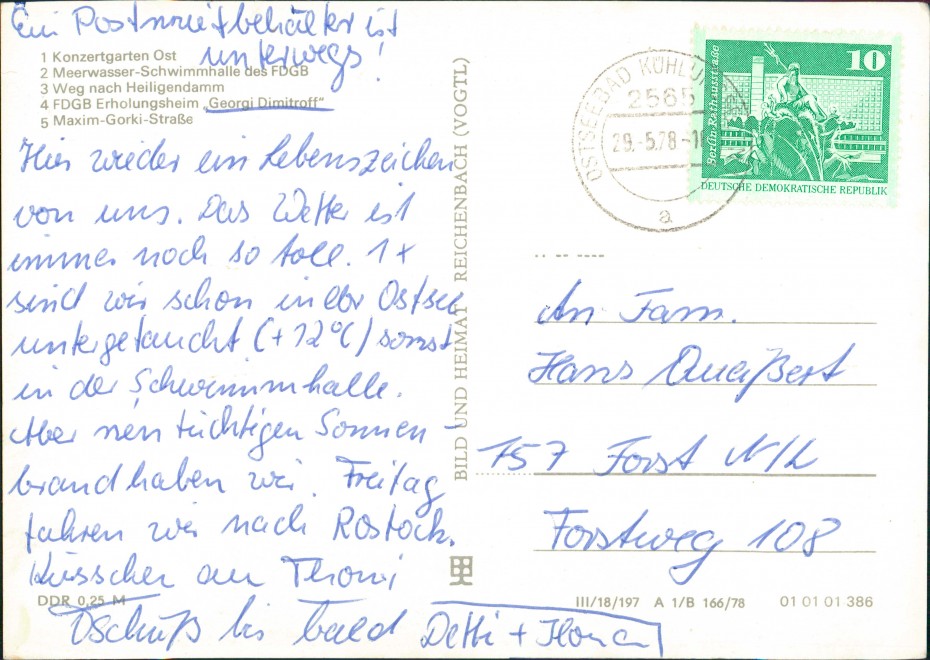 Ein Postmietbehälter ist
unterwegs!
1 Konzertgarten Ost
2 Meerwasser-Schwimmhalle des FDGB
3 Weg nach Heiligendamm
4 FDGB Erholungsheim „Georgi Dimitroff"
5 Maxim-Gorki-Straße
Hier wieder ein Lebenszeichen
von uns. Das Wetter ist
immer noch so toll. 1x
sind wir schon in der Ostsee
untergetaucht (+12°C) sonst
in der Schwimmhalle.
Aber nen tüchtigen Sonnen-
brand haben wir. Freitag
fahren wir nach Rostock.
Küsschen an Thomi
Tschüß bis bald Detti + Ilona
DDR 0,25 M
BILD UND HEIMAT REICHENBACH (VOGTL)
OSTSEEBAD KÜHLU
2565
29.-5.78-1
a
Berlin-Rathausstraße
10
DEUTSCHE DEMOKRATISCHE REPUBLIK
An Fam.
Hans
757 Forst N/L
Forstweg 108
III/18/197 A 1/B 166/78 01 01 01 386